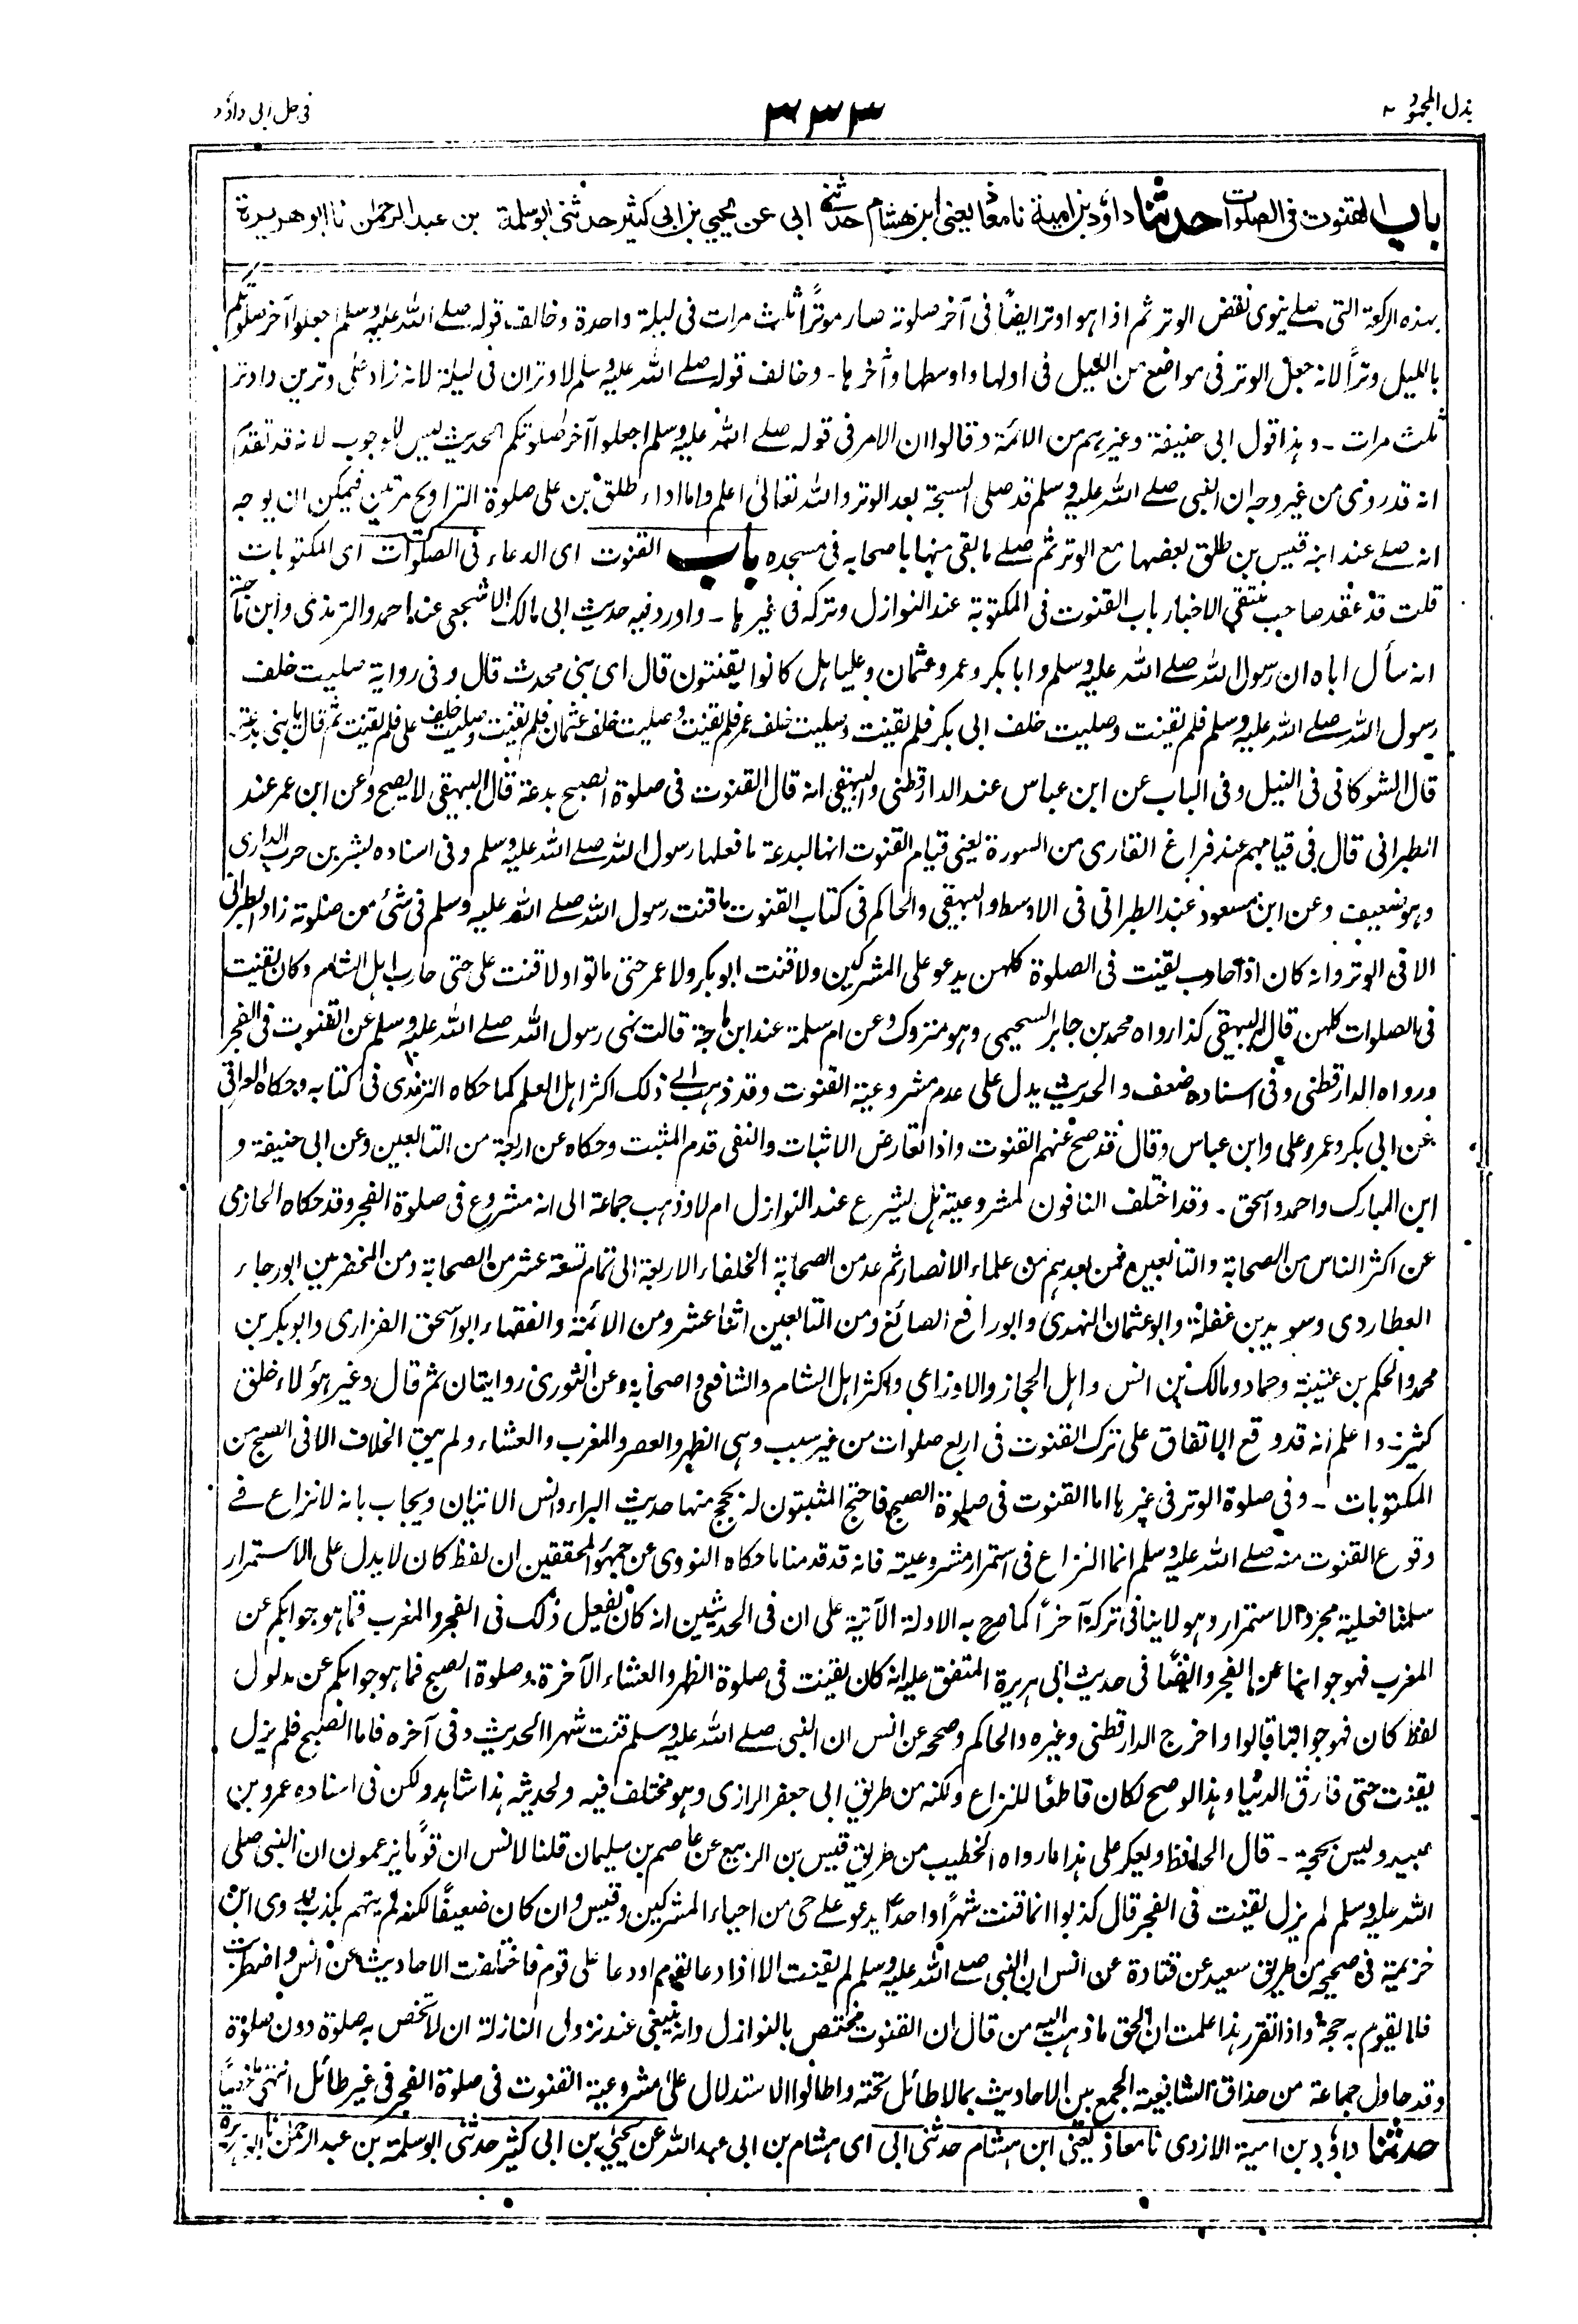 بذل المجهود ۲
۳۳۳
فی حل ابی داؤد
باب القنوت فی الصلوات حدثنا داؤد بن امیة نا معاذ یعنی ابن هشام حدثنی ابی عن یحیی بن ابی کثیر حدثنی ابو سلمة بن عبد الرحمٰن نا ابو هریرة
بهذه الرکعة التی صلے ینوی نقض الوتر ثم اذا هو اوتر ایضًا فی آخر صلوته صار موترًا ثلث مرات فی لیلة واحدة وخالف قوله صلے اللہ علیه وسلم اجعلوا آخر صلوتکم
باللیل وترًا لانه جعل الوتر فی مواضع من اللیل فی اولها واوسطها وآخرها ـ وخالف قوله صلے اللہ علیه وسلم لا وتران فی لیلة لانه زاد علی وترین واوتر
ثلث مرات ـ وهذا قول ابی حنیفة وغیرهم من الائمة وقالوا ان الامر فی قوله صلے اللہ علیه وسلم اجعلوا آخر صلوتکم الحدیث لیس للوجوب لانه قد تقدم
انه قد روی من غیر وجه ان النبی صلے اللہ علیه وسلم قد صلی السبحة بعد الوتر واللہ تعالیٰ اعلم واما اداء طلق بن علی صلوة التراویح مرتین فیمکن ان یوجه
انه صلے عند ابنه قیس بن طلق بعضها مع الوتر ثم صلے ما بقی منها باصحابه فی مسجده باب القنوت ای الدعاء فی الصلوات ای المکتوبات
قلت قد عقد صاحب منتقی الاخبار باب القنوت فی المکتوبة عند النوازل وترکه فی غیرها ـ واورد فیه حدیث ابی مالک الاشجعی عند احمد والترمذی وابن ماجة
انه سأل اباه ان رسول اللہ صلے اللہ علیه وسلم وابا بکر وعمر وعثمان وعلیا هل کانوا یقنتون قال ای بنی محدث قال وفی روایة صلیت خلف
رسول اللہ صلے اللہ علیه وسلم فلم یقنت وصلیت خلف ابی بکر فلم یقنت وصلیت خلف عمر فلم یقنت وصلیت خلف عثمان فلم یقنت وصلیت خلف علی فلم یقنت ثم قال یا بنی بدعة
قال الشوکانی فی النیل وفی الباب عن ابن عباس عند الدارقطنی والبیهقی انه قال القنوت فی صلوة الصبح بدعة قال البیهقی لا یصح وعن ابن عمر عند
الطبرانی قال فی قیامهم عند فراغ القاری من السورة یعنی قیام القنوت انها لبدعة ما فعلها رسول اللہ صلے اللہ علیه وسلم وفی اسناده بشر بن حرب الداری
وهو ضعیف وعن ابن مسعود عند الطبرانی فی الاوسط والبیهقی والحاکم فی کتاب القنوت ما قنت رسول اللہ صلے اللہ علیه وسلم فی شئ من صلوته زاد الطبرانی
الا فی الوتر وانه کان اذا حارب یقنت فی الصلوة کلهن یدعو علی المشرکین ولا قنت ابو بکر ولا عمر حتی ماتوا ولا قنت علی حتی حارب اهل الشام وکان یقنت
فی الصلوات کلهن قال البیهقی کذا رواه محمد بن جابر السحیمی وهو متروک وعن ام سلمة عند ابن ماجة قالت نهی رسول اللہ صلے اللہ علیه وسلم عن القنوت فی الفجر
ورواه الدارقطنی وفی اسناده ضعف والحدیث یدل علی عدم مشروعیة القنوت وقد ذهب الے ذلک اکثر اهل العلم کما حکاه الترمذی فی کتابه وحکاه العراقی
عن ابی بکر وعمر وعلی وابن عباس وقال قد صح عنهم القنوت واذا تعارض الاثبات والنفی قدم المثبت وحکاه عن اربعة من التابعین وعن ابی حنیفة و
ابن المبارک واحمد واسحق ـ وقد اختلف النافون لمشروعیته هل یشرع عند النوازل ام لا وذهب جماعة الی انه مشروع فی صلوة الفجر وقد حکاه الحازمی
عن اکثر الناس من الصحابة والتابعین فمن بعدهم من علماء الانصار ثم عد من الصحابة الخلفاء الاربعة الی تمام تسعة عشر من الصحابة ومن المخضرمین ابو رجاء
العطاردی وسوید بن غفلة وابو عثمان النهدی وابو رافع الصائغ ومن التابعین اثنا عشر ومن الائمة والفقهاء ابو اسحق الفزاری وابو بکر بن
محمد والحکم بن عتیبة وحماد ومالک بن انس واهل الحجاز والاوزاعی واکثر اهل الشام والشافعی واصحابه وعن الثوری روایتان ثم قال وغیر هؤلاء خلق
کثیر ـ واعلم انه قد وقع الاتفاق علی ترک القنوت فی اربع صلوات من غیر سبب وهی الظهر والعصر والمغرب والعشاء ولم یبق الخلاف الا فی الصبح من
المکتوبات ـ وفی صلوة الوتر فی غیرها اما القنوت فی صلوة الصبح فاحتج المثبتون له بحجج منها حدیث البراء وانس الاتیان ویجاب بانه لا نزاع فے
وقوع القنوت منه صلے اللہ علیه وسلم انما النزاع فی استمرار مشروعیته فانه قد قدمنا ما حکاه النووی عن جمهور المحققین ان لفظ کان لا یدل علی الاستمرار
سلمنا فغایته مجرد الاستمرار وهو لا ینافی ترکه آخرًا کما صرح به الادلة الآتیة علی ان فی الحدیثین انه کان یفعل ذلک فی الفجر والمغرب فما هو جوابکم عن
المغرب فهو جوابنا عن الفجر وایضًا فی حدیث ابی هریرة المتفق علیه انه کان یقنت فی صلوة الظهر والعشاء الآخرة وصلوة الصبح فما هو جوابکم عن مدلول
لفظ کان فهو جوابنا قالوا واخرج الدارقطنی وغیره والحاکم وصححه عن انس ان النبی صلے اللہ علیه وسلم قنت شهرا الحدیث وفی آخره فاما الصبح فلم یزل
یقنت حتی فارق الدنیا وهذا لو صح لکان قاطعًا للنزاع ولکنه من طریق ابی جعفر الرازی وهو مختلف فیه ولحدیثه هذا شاهد ولکن فی اسناده عمرو بن
عبید ولیس بحجة ـ قال الحافظ ویعکر علی هذا ما رواه الخطیب من طریق قیس بن الربیع عن عاصم بن سلیمان قلنا لانس ان قومًا یزعمون ان النبی صلی
اللہ علیه وسلم لم یزل یقنت فی الفجر قال کذبوا انما قنت شهرًا واحدا یدعو علے حی من احیاء المشرکین وقیس وان کان ضعیفًا لکنه لم یتهم بکذب وروی ابن
خزیمة فی صحیحه من طریق سعید عن قتادة عن انس ان النبی صلے اللہ علیه وسلم لم یقنت الا اذا دعا لقوم او دعا علی قوم فاختلفت الاحادیث عن انس واضطربت
فلا یقوم به حجة واذا تقرر هذا علمت ان الحق ما ذهب الیه من قال ان القنوت مختص بالنوازل وانه ینبغی عند نزول النازلة ان لا تخص به صلوة دون صلوة
وقد حاول جماعة من حذاق الشافعیة الجمع بین الاحادیث بما لا طائل تحته واطالوا الاستدلال علی مشروعیة القنوت فی صلوة الفجر فی غیر طائل انتهی ملخصًا
حدثنا داؤد بن امیة الازدی نا معاذ یعنی ابن هشام حدثنی ابی ای هشام بن ابی عبد اللہ عن یحیی بن ابی کثیر حدثنی ابو سلمة بن عبد الرحمٰن نا ابو هریرة